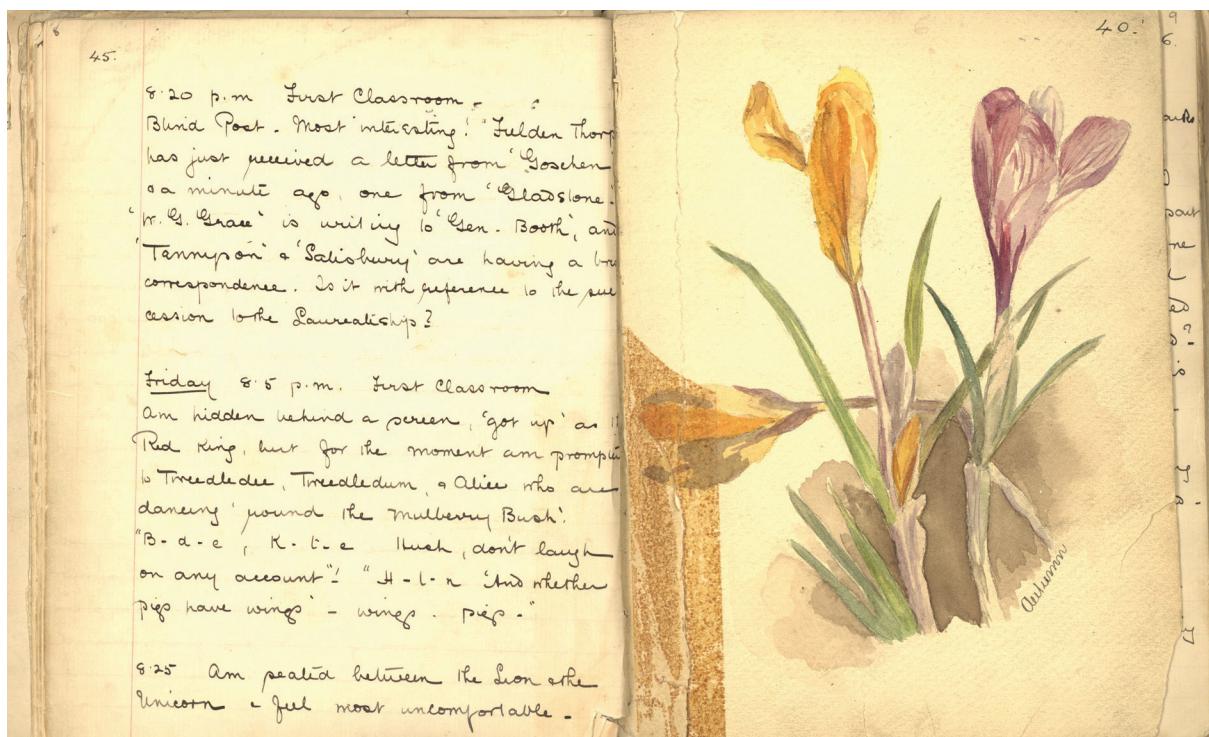 45.
8.20 p.m First Classroom -
Blind Post. Most interesting! "Fielden Thorp
has just received a letter from 'Goschen
& a minute ago, one from 'Gladstone'.
'W. G. Grace' is writing to 'Gen. Booth', and
'Tennyson' & 'Salisbury' are having a
correspondence. Is it with reference to the suc
cession to the Laureatship?
Friday 8.5 p.m. First Classroom
Am hidden behind a screen, 'got up' as
Red King, but for the moment am
to Tweedledee, Tweedledum, & Alice who are
dancing 'round the Mulberry Bush'.
"B-d-e, K-t-e Hush, don't laugh
on any account"! "H-l-n 'And whether
pigs have wings' - wings. pigs -"
8.25 Am seated between the Lion & the
Unicorn & feel most uncomfortable -
40.
Autumn
9
6.